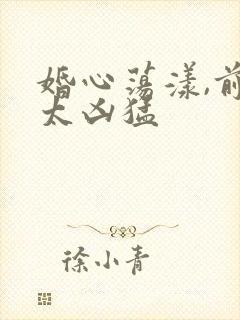 婚心荡漾,前
太凶猛
徐小青